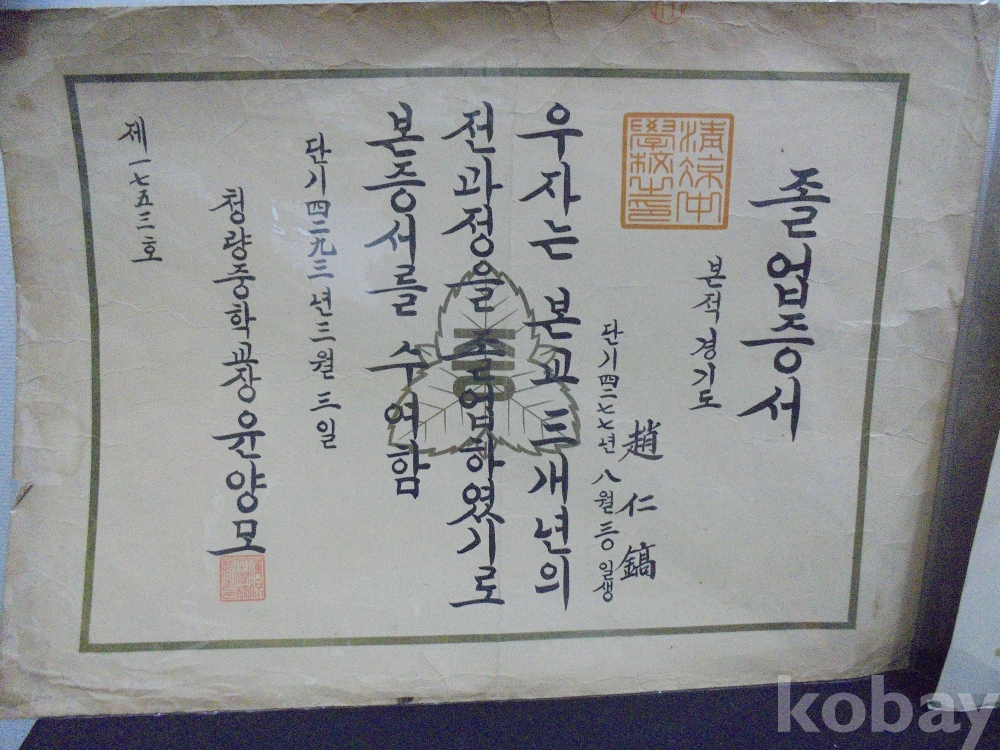 졸업증서
본적 경기도
淸凉中
學校之印
趙仁鎬
단기四二七七년 八월 三〇일생
우자는 본교 三개년의
전과정을 졸업하였기로
본증서를 수여함
중
단기四二九三년 三월 三일
청량중학교장 윤양모
제一七五三호
kobay